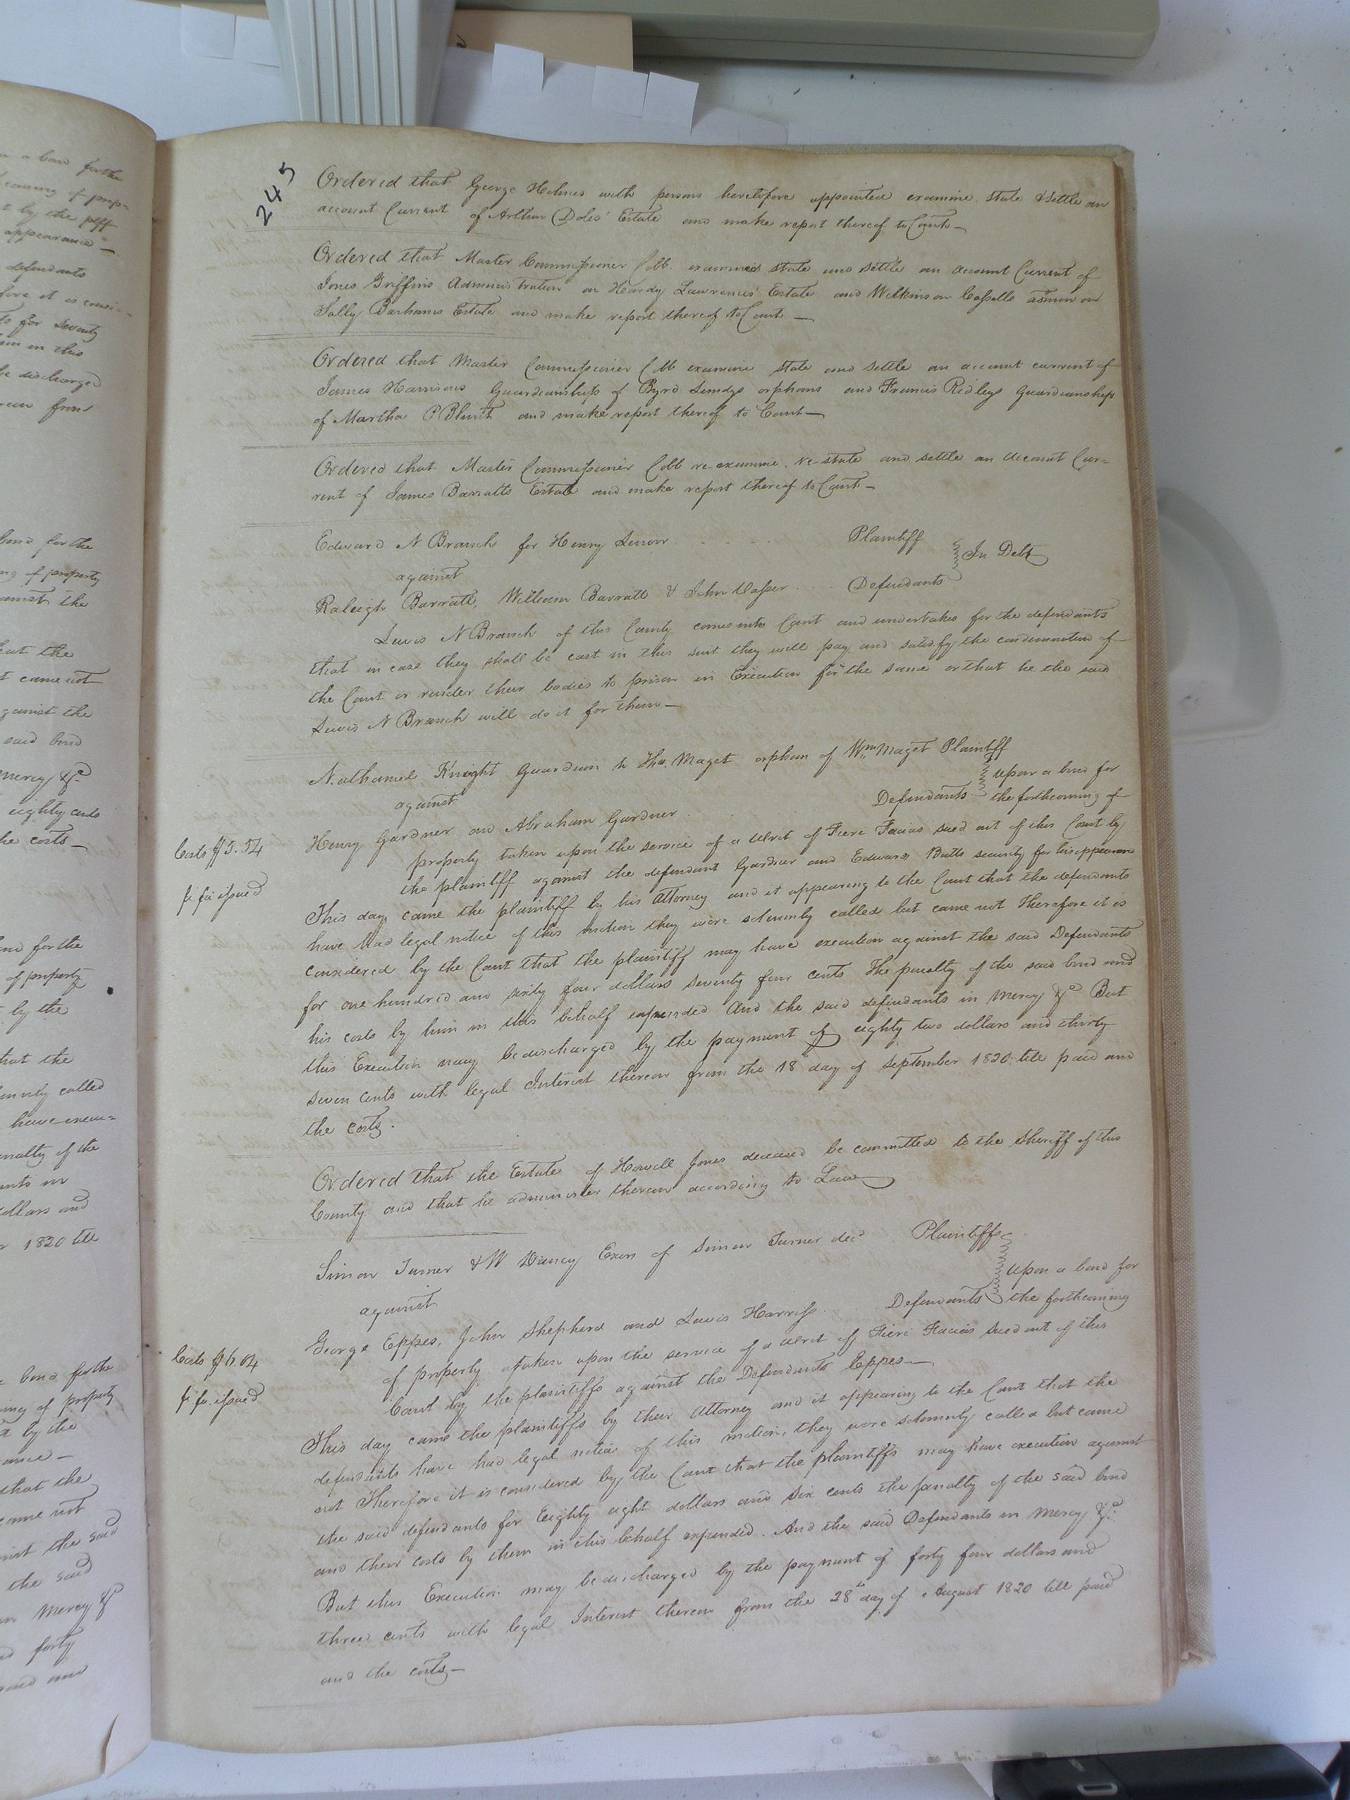 245
Ordered that George Holmes with persons heretofore appointed examine, state & settle an
account Current of Arthur Doles' Estate and make report thereof to Court—
Ordered that Master Commissioner Cobb examine state and settle an account Current of
Jones Griffins Administration on Hardy Lawrences Estate and Wilkinson admor on
Sally Barhams Estate and make report thereof to Court—
Ordered that Master Commissioner Cobb examine state and settle an account current of
James Harrisons Guardianship of Byrd orphans and Francis Ridleys Guardianship
of Martha P Blunt and make report thereof to Court—
Ordered that Master Commissioner Cobb re-examine, re-state and settle an account Cur=
rent of James Barratts Estate and make report thereof to Court—
Edward N Branch for Henry Plaintiff
against In Debt
Raleigh Barratt, William Barratt & John Defendants
Lewis N Branch of this County comes into Court and undertakes for the defendants
that in case they shall be cast in this suit they will pay and satisfy the condemnation of
the Court or render their bodies to prison in Execution for the same or that he the said
Lewis N Branch will do it for them—
Nathaniel Knight Guardian to Thos. Maget orphan of Wm Maget Plaintiff
against upon a bond for
Henry Gardner and Abraham Gardner Defendants the forthcoming of
property taken upon the service of a Writ of Fieri Facias sued out of this Court by
the plaintiff against the defendant Gardner and Edward Butts security for his appearance
Costs $5.54
fi fa issued
This day came the plaintiff by his Attorney and it appearing to the Court that the defendants
have had legal notice of this motion they were solemnly called but came not Therefore it is
considered by the Court that the plaintiff may have execution against the said Defendants
for one hundred and sixty four dollars seventy four cents The penalty of the said bond and
his costs by him in this behalf expended And the said defendants in Mercy &c But
this Execution may be discharged by the payment of eighty two dollars and thirty
seven cents with legal Interest thereon from the 18 day of September 1820 till paid and
the costs.
Ordered that the Estate of Howell Jones deceased be committed to the Sheriff of this
County and that he administer thereon according to Law
Simon Turner & W Exors of Simon Turner decd Plaintiffs
against upon a bond for
George Eppes, John Shepherd and Lewis Harriss Defendants the forthcoming
of property taken upon the service of a Writ of Fieri Facias sued out of this
Court by the plaintiffs against the Defendants Eppes—
Costs $6.04
fi fa issued
This day came the plaintiffs by their Attorney and it appearing to the Court that the
defendants have had legal notice of this motion, they were solemnly called but came
not Therefore it is considered by the Court that the plaintiffs may have execution against
the said defendants for Eighty eight dollars and six cents the penalty of the said bond
and their costs by them in this behalf expended. And the said Defendants in Mercy &c
But this Execution may be discharged by the payment of forty four dollars and
three cents with legal Interest thereon from the 28th day of August 1820 till paid
and the costs—